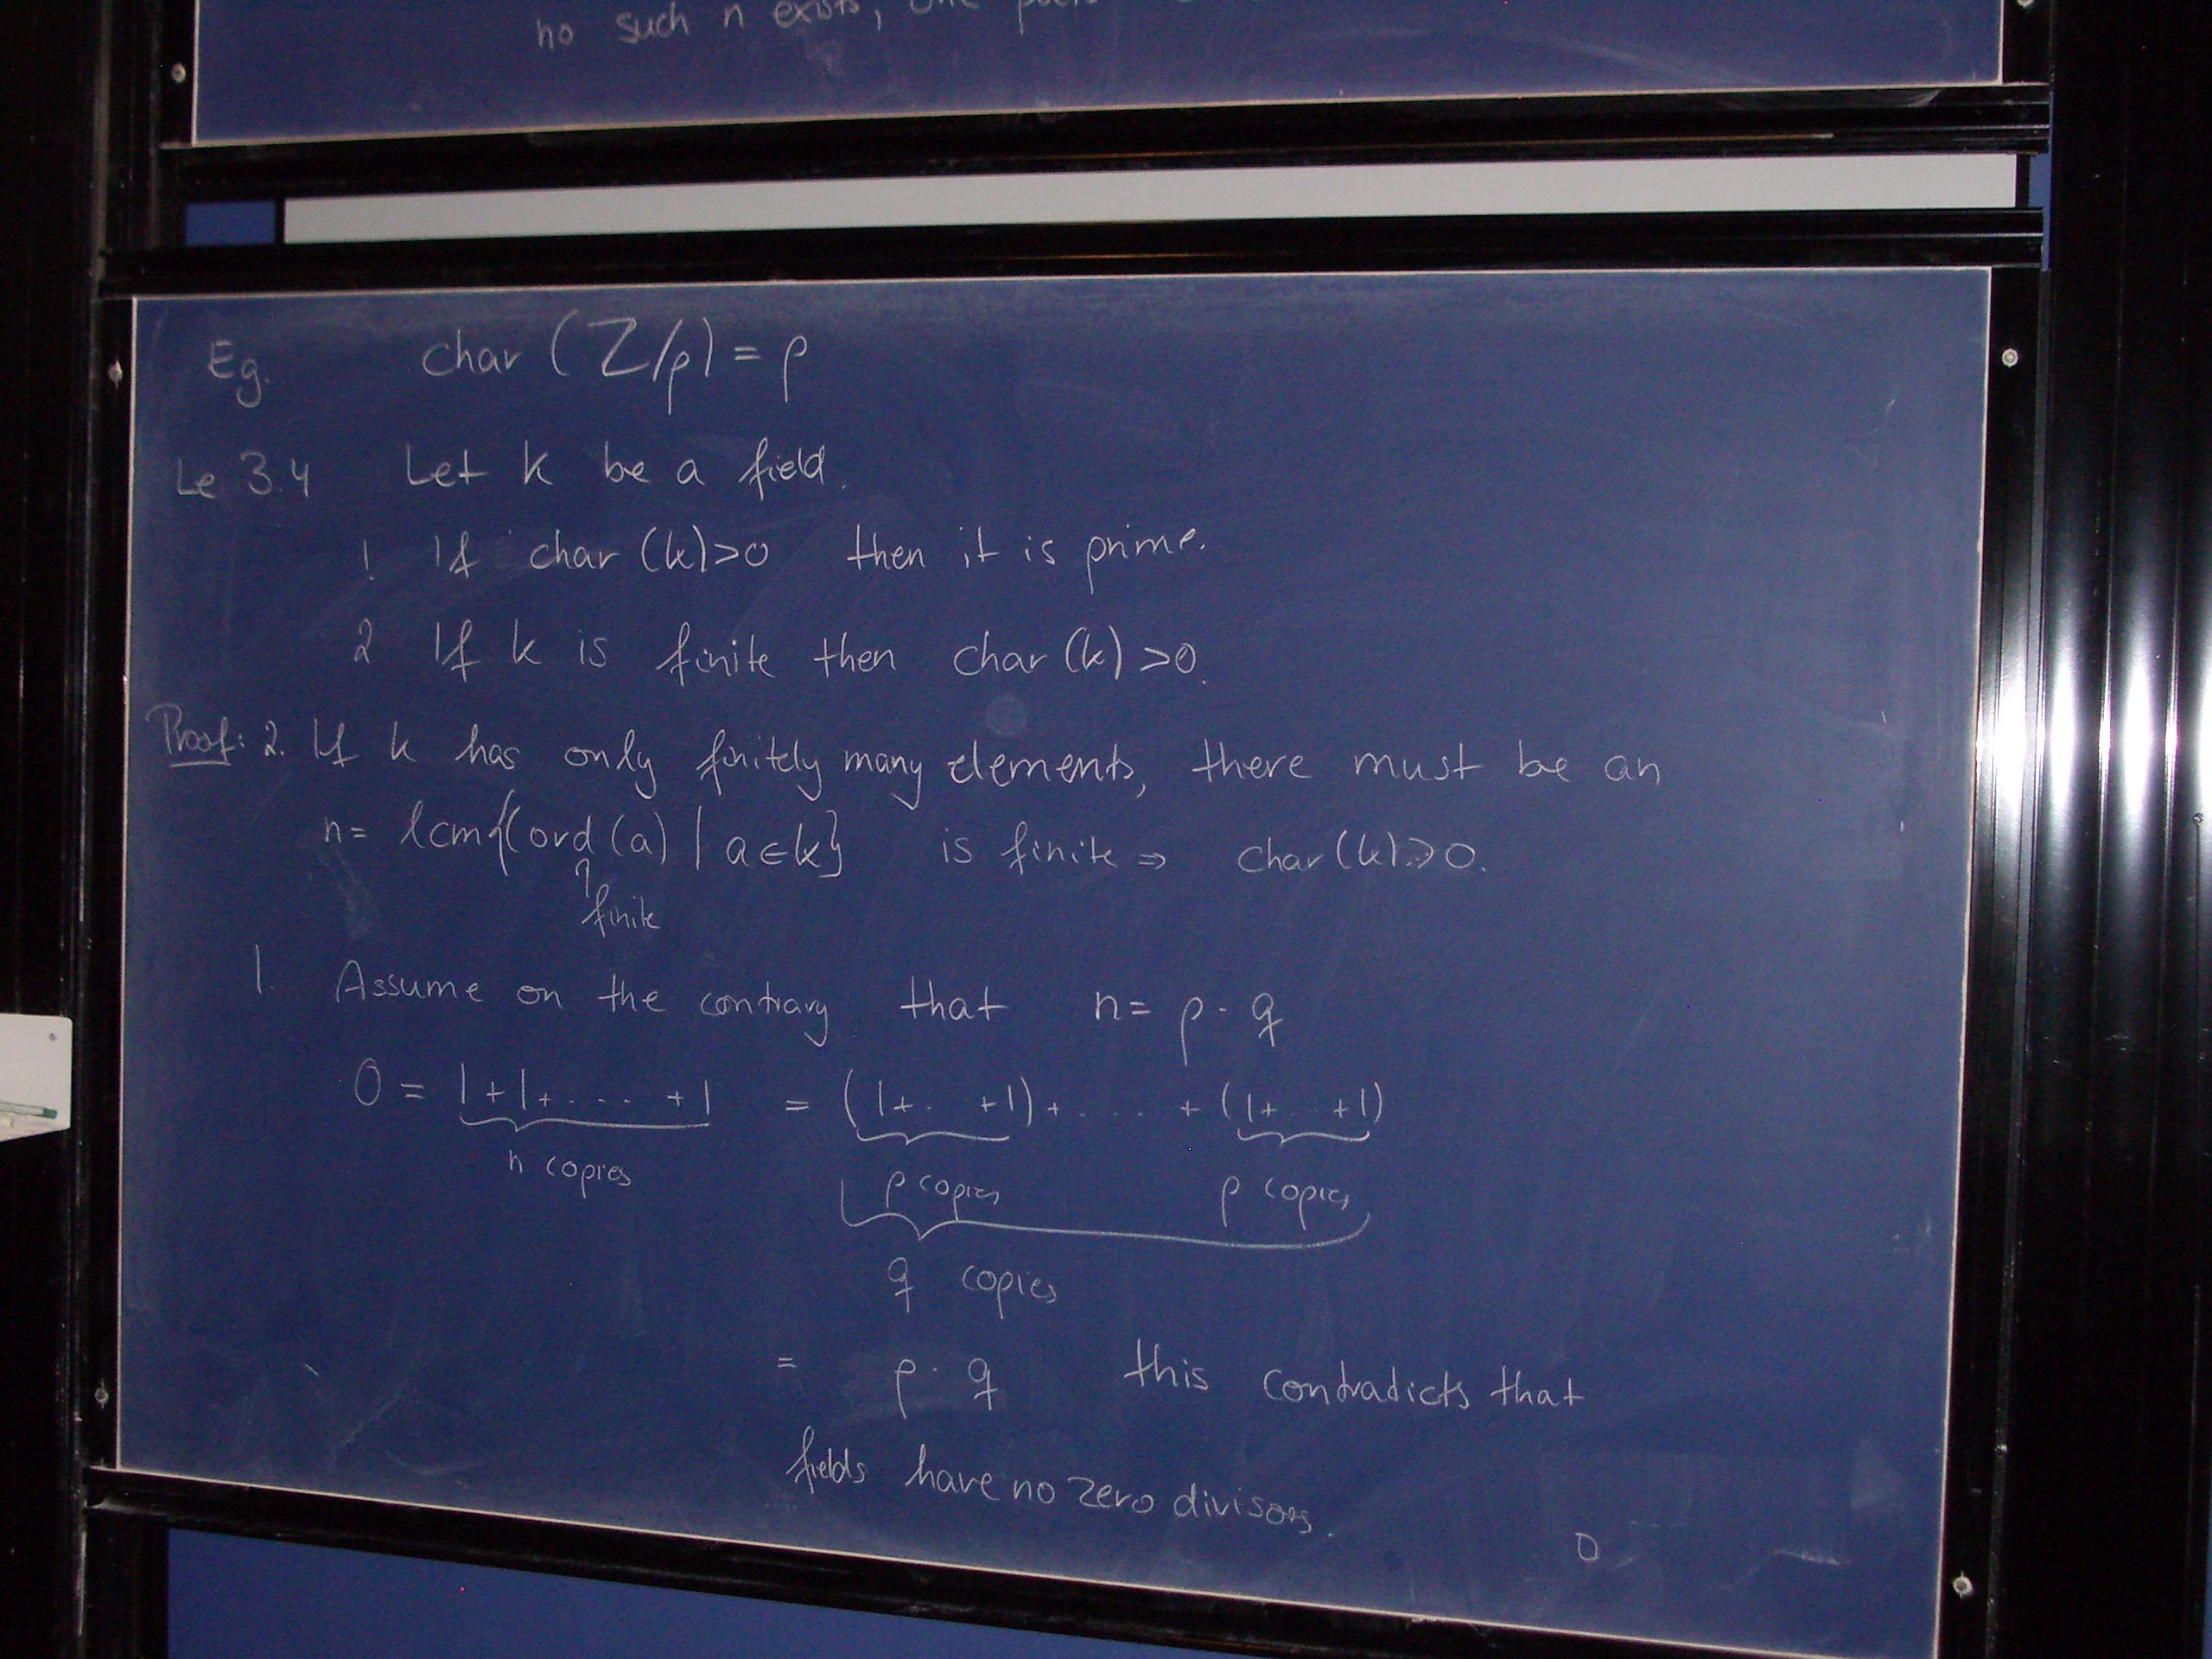 no such n exists, one
Eg. char (Z/p) = p
Le 3.4 Let k be a field.
1 If char (k)>0 then it is prime.
2 If k is finite then char (k) >0.
Proof: 2. If k has only finitely many elements, there must be an
n= lcm{(ord (a) | a∈k} is finite ⇒ char (k)>0.
↑
finite
1. Assume on the contrary that n= p · q
0 = 1+1+ . . . . +1 = (1+ . . +1) + . . . . + (1+ . . +1)
n copies p copies p copies
q copies
= p · q this contradicts that
fields have no zero divisors.
□